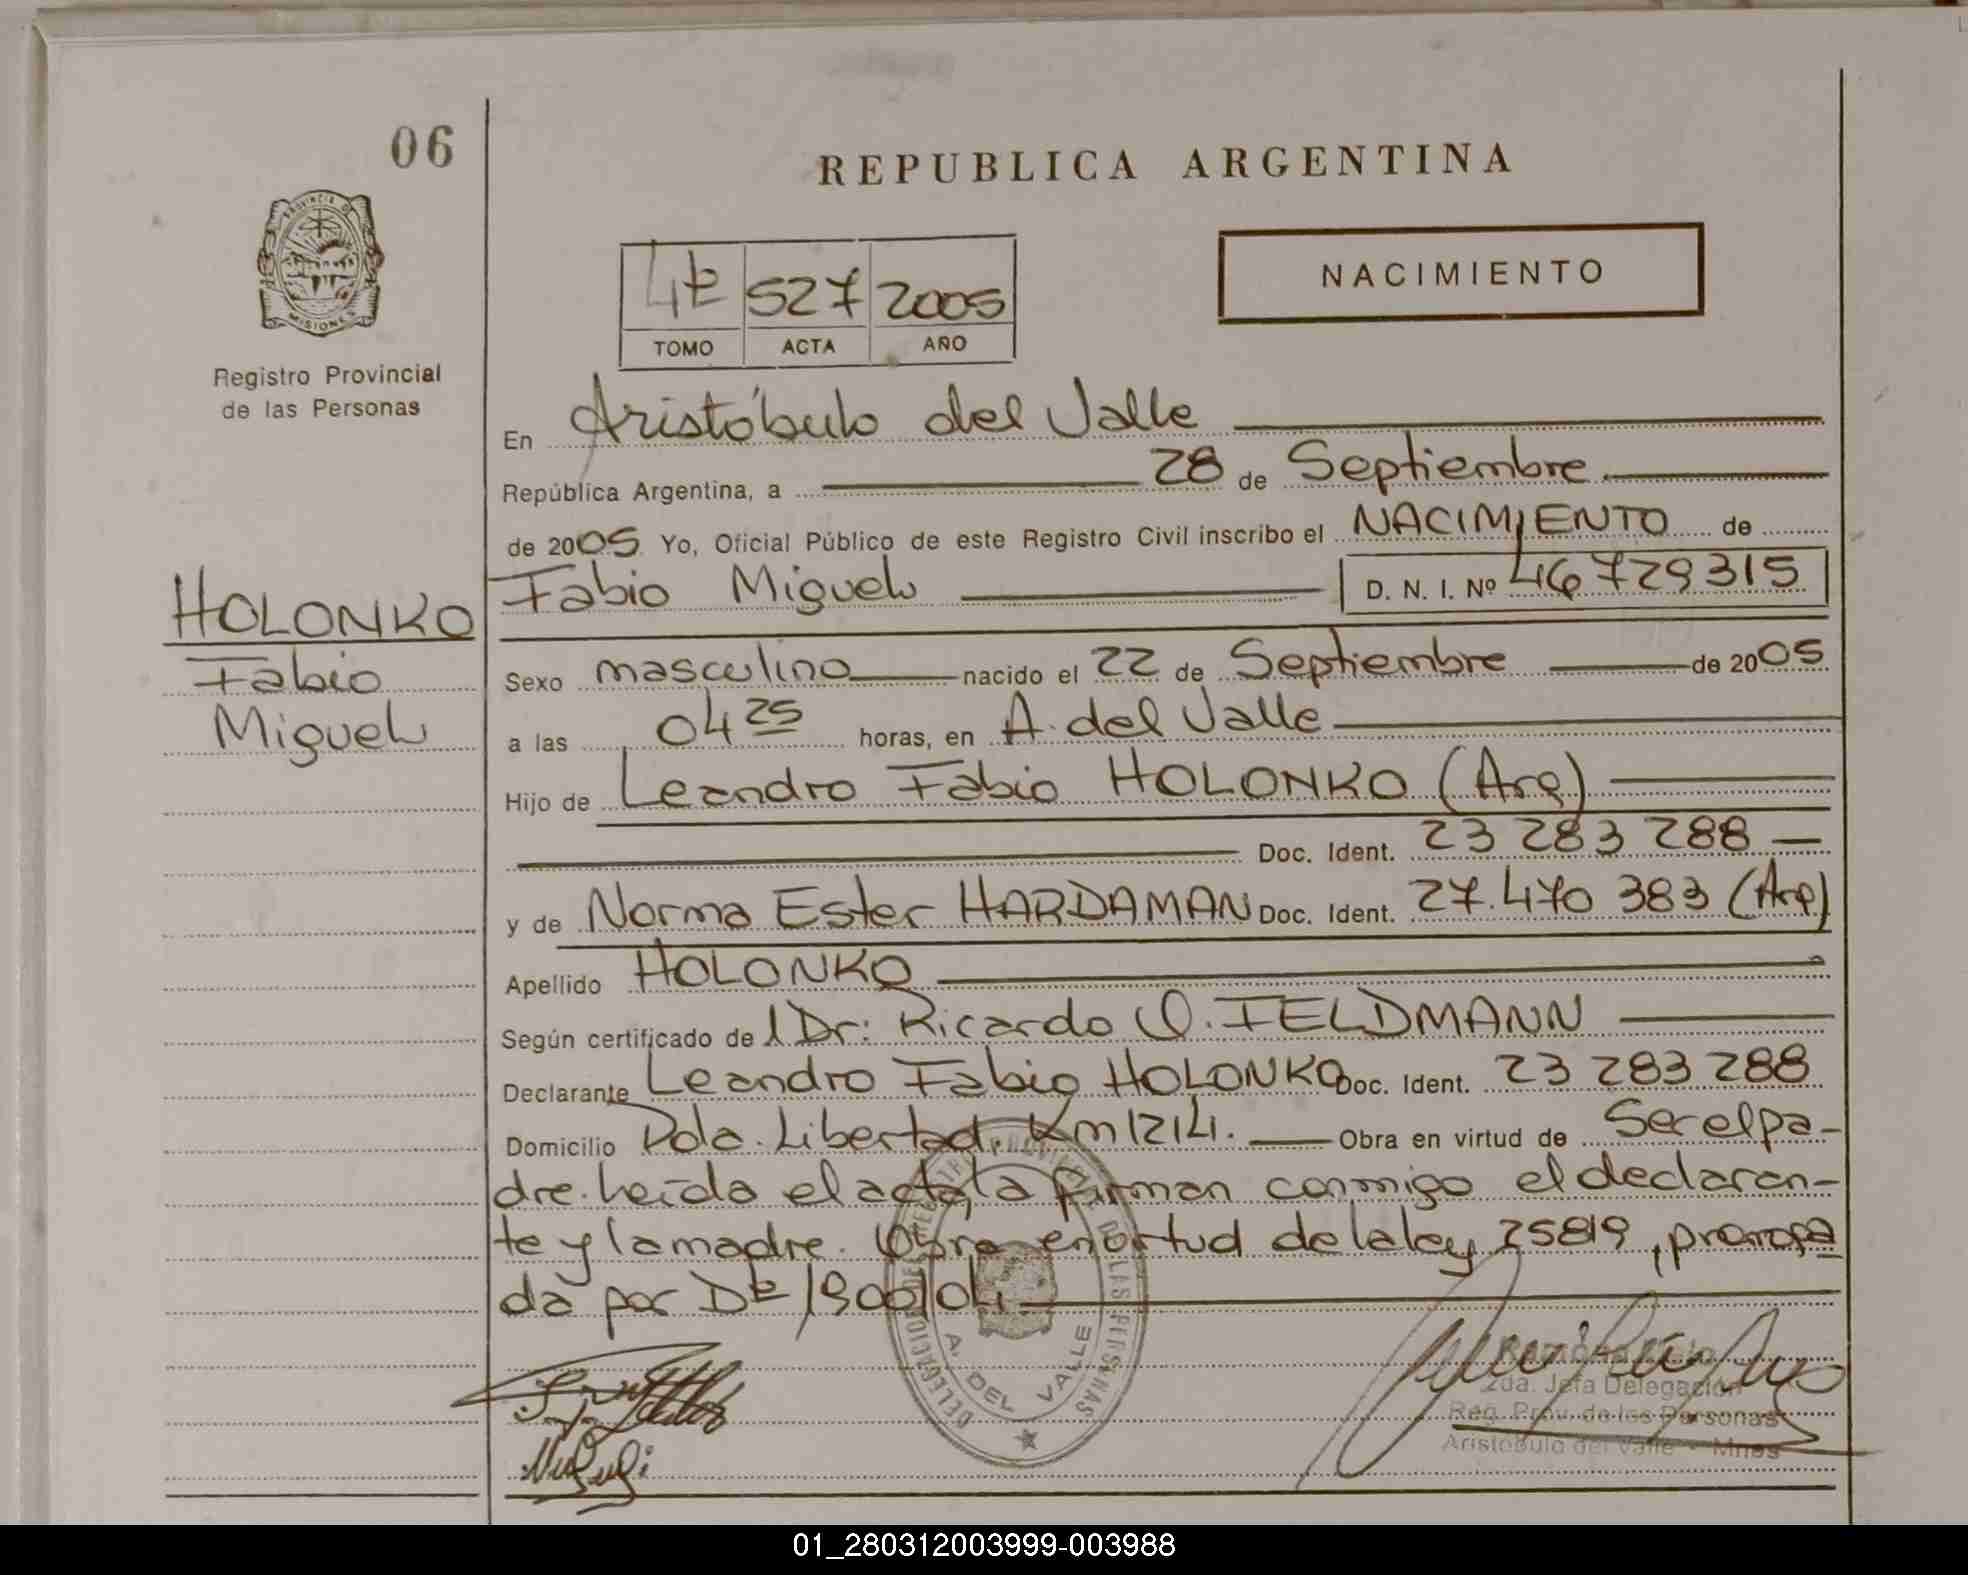 06
REPUBLICA ARGENTINA
PROVINCIA DE
MISIONES
Registro Provincial
de las Personas
NACIMIENTO
4to 527 2005
TOMO ACTA AÑO
En Aristóbulo del Valle
República Argentina, a 28 de Septiembre
de 2005 Yo, Oficial Público de este Registro Civil inscribo el NACIMIENTO de
HOLONKO
Fabio
Miguel
Fabio Miguel D. N. I. Nº 46729315
Sexo masculino nacido el 22 de Septiembre de 2005
a las 04 25 horas, en A. del Valle
Hijo de Leandro Fabio HOLONKO (Arg)
Doc. Ident. 23 283 288
y de Norma Ester HARDAMAN Doc. Ident. 27.470 383 (Arg)
Apellido HOLONKO
Según certificado del Dr: Ricardo O. FELDMANN
Declarante Leandro Fabio HOLONKO Doc. Ident. 23 283 288
Domicilio Pdla. Libertad. Km 1214. Obra en virtud de Ser el pa-
dre. Leída el acta, la firman conmigo el declaran-
te y la madre. Obra en virtud de la ley 25819, prorroga
da por Dto 1900/04.
A. DEL VALLE
2da. Jefa Delegación
Reg. Prov. de las Personas
Aristóbulo del Valle - Mnes
01_280312003999-003988